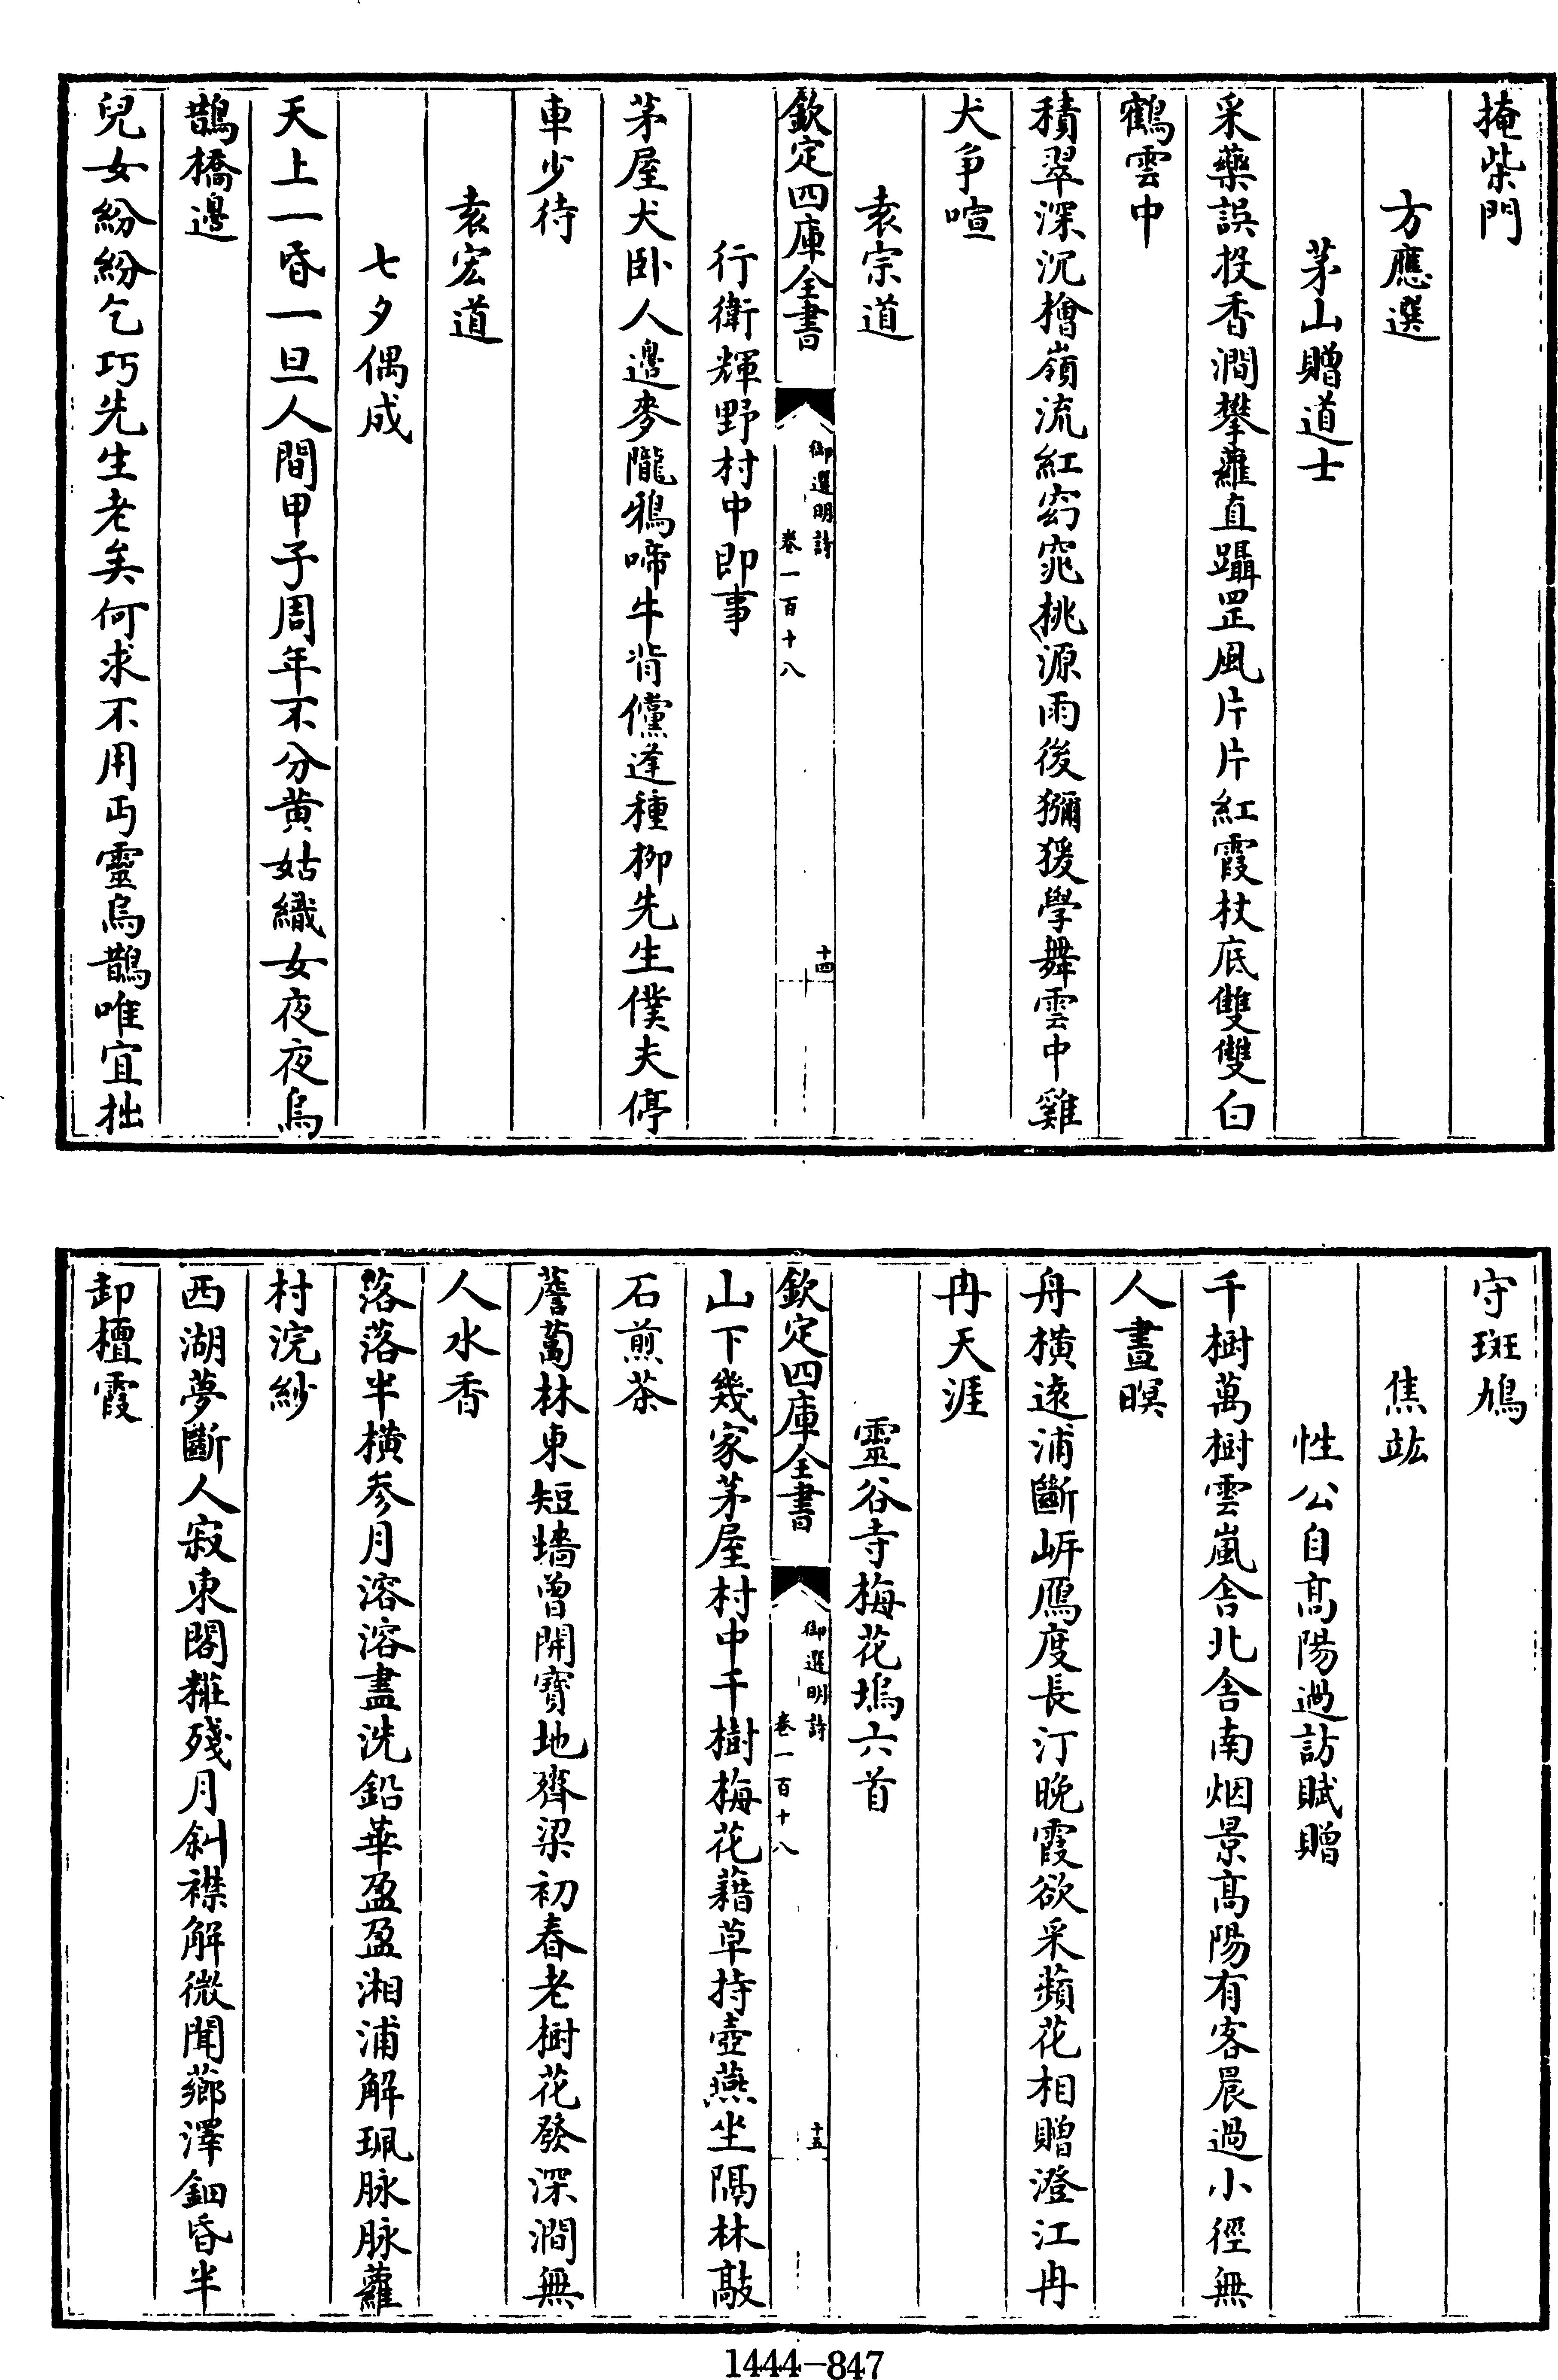 掩柴門
方應選
茅山贈道士
采藥誤投香澗攀蘿直躡罡風片片紅霞杖底雙雙白
鶴雲中
積翠深沉檜嶺流紅窈窕桃源雨後獼猨學舞雲中雞
犬爭喧
袁宗道
欽定四庫全書
御選明詩
卷一百十八
十四
行衛輝野村中即事
茅屋犬卧人邊麥隴鴉啼牛背儻逢種柳先生僕夫停
車少待
袁宏道
七夕偶成
天上一昏一旦人間甲子周年不分黄姑織女夜夜烏
鵲橋邊
兒女紛紛乞巧先生老矣何求不用丐靈烏鵲唯宜拙
守斑鳩
焦竑
性公自髙陽過訪賦贈
千樹萬樹雲嵐舍北舍南烟景髙陽有客晨過小徑無
人晝暝
舟横逺浦斷岍鴈度長汀晚霞欲采蘋花相贈澄江冉
冉天涯
靈谷寺梅花塢六首
欽定四庫全書
御選明詩
卷一百十八
十五
山下幾家茅屋村中千樹梅花藉草持壺燕坐隔林敲
石煎茶
薝蔔林東短墻曾開寶地齊梁初春老樹花發深澗無
人水香
落落半横參月溶溶盡洗鉛華盈盈湘浦解珮脉脉蘿
村浣紗
西湖夢斷人寂東閣糚殘月斜襟解微聞薌澤鈿昏半
卸檀霞
1444-847